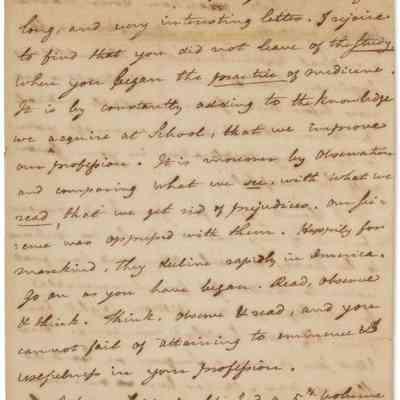 long, and very interesting letter. I rejoice
to find that you did not leave of the study
when you began the practice of medicine.
It is by constantly adding to the knowledge
we acquire at School, that we improve
our profession. It is moreover by observation
and comparing what we see, with what we
read, that we get rid of prejudices. Our sci-
ence was oppressed with them. Happily for
mankind, they decline rapidly in America.
Go on as you have began. Read, observe
& think. Think, observe & read, and you
cannot fail of attaining to eminence &
usefulness in your profession.
5th volume